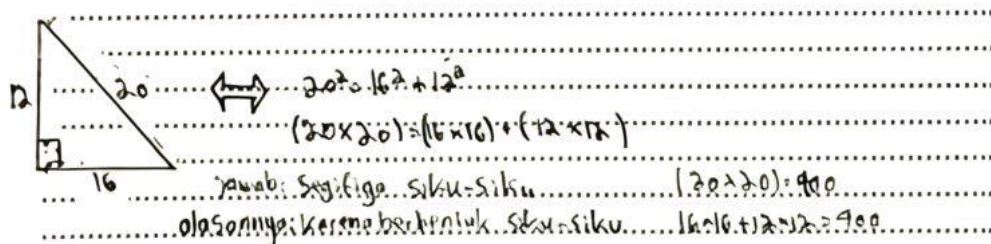 12 20 ⇔ 20² = 16² + 12²
(20×20) = (16×16) + (12×12)
16
jawab: Segitiga siku-siku (20×20) = 400
alasannya: karena berbentuk siku-siku 16×16+12×12=400